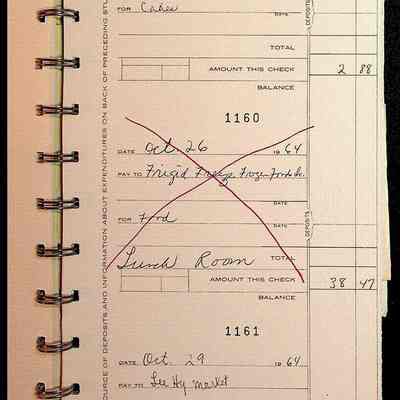 FOR Cakes
DATE
TOTAL
AMOUNT THIS CHECK 2 88
BALANCE
1160
DATE Oct. 26 1964
PAY TO Frigid Freeze Froze Foods
DATE
FOR Food
DATE
Lunch Room TOTAL
AMOUNT THIS CHECK 38 47
BALANCE
1161
DATE Oct. 29 1964
PAY TO Lee Hy market
DEPOSITS
DEPOSITS
OURCE OF DEPOSITS AND INFORMATION ABOUT EXPENDITURES ON BACK OF PRECEDING STU